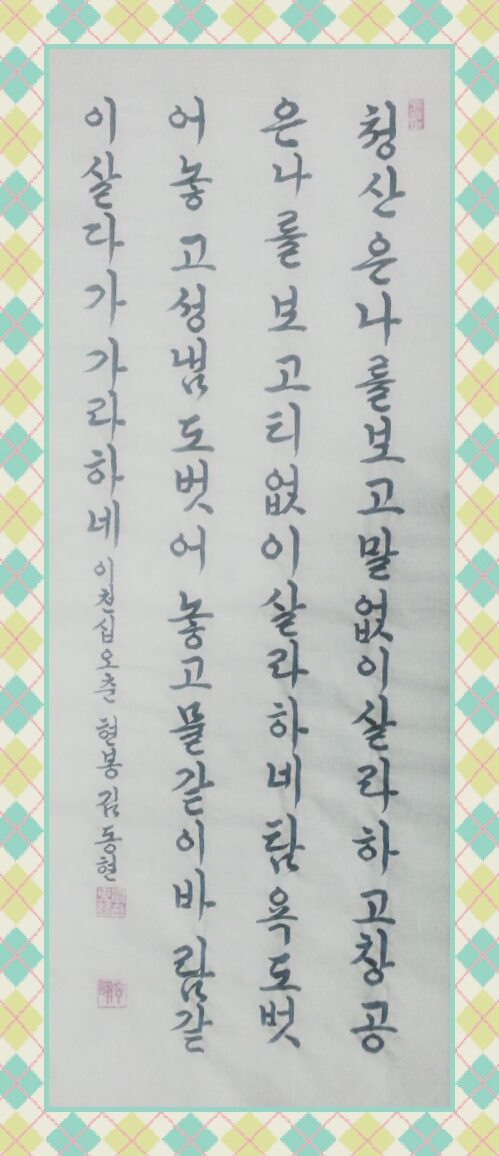 청산은나를보고말없이살라하고창공
은나를보고티없이살라하네탐욕도벗
어놓고성냄도벗어놓고물같이바람같
이살다가가라하네 이천십오춘 현봉 김동현